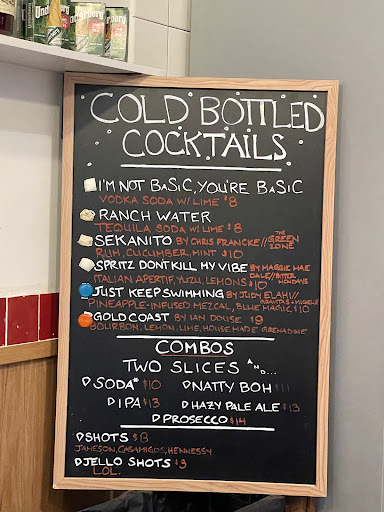 Underberg
COLD BOTTLED
COCKTAILS
I'M NOT BASIC, YOU'RE BASIC
VODKA SODA W/ LIME $8
RANCH WATER
TEQUILA SODA W/ LIME $8
SEKANITO BY CHRIS FRANCKE// THE GREEN ZONE
RUM, CUCUMBER, MINT $10
SPRITZ DONT KILL MY VIBE BY MAGGIE MAE DALE// BITTER MONDAYS
ITALIAN APERTIF, YUZU, LEMONS $10
JUST KEEP SWIMMING BY JUDY ELAHI//
PINEAPPLE-INFUSED MEZCAL, BLUE MAGIC $10
GOLD COAST BY IAN DOUSE $9
BOURBON, LEMON, LIME, HOUSE MADE GRENADINE
COMBOS
TWO SLICES AND...
SODA $10 NATTY BOH $11
IPA $13 HAZY PALE ALE $13
PROSECCO $14
SHOTS $8
JAMESON, CASAMIGOS, HENNESSY
JELLO SHOTS $3
LOL.